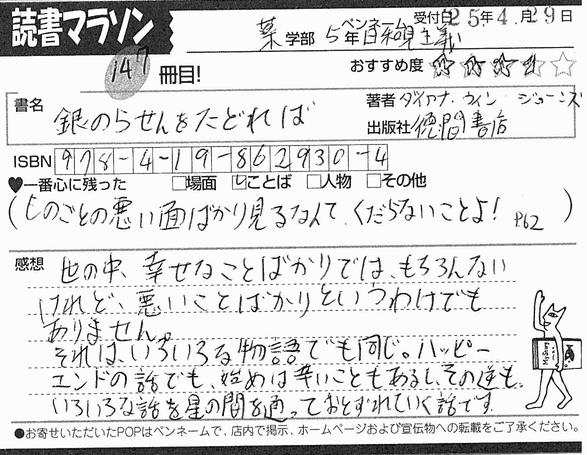 読書マラソン
薬 学部 5年 ペンネーム 自純主義 受付日 25年4月29日
147 冊目!
おすすめ度 ☆☆☆☆☆
書名 銀のらせんをたどれば
著者 ダイアナ・ウィン・ジョーンズ
出版社 徳間書店
ISBN 978-4-19-862930-4
♥一番心に残った □場面 ☑ことば □人物 □その他
(ものごとの悪い面ばかり見るなんて、くだらないことよ! P62)
感想 世の中、幸せなことばかりでは、もちろんない
けれど、悪いことばかりというわけでも
ありません。
それは、いろいろな物語でも同じ。ハッピー
エンドの話でも、始めは辛いこともあるし、その逆も。
いろいろな話を星の間を通っておとずれていく話です
●お寄せいただいたPOPはペンネームで、店内で掲示、ホームページおよび宣伝物への転載をご了承ください。